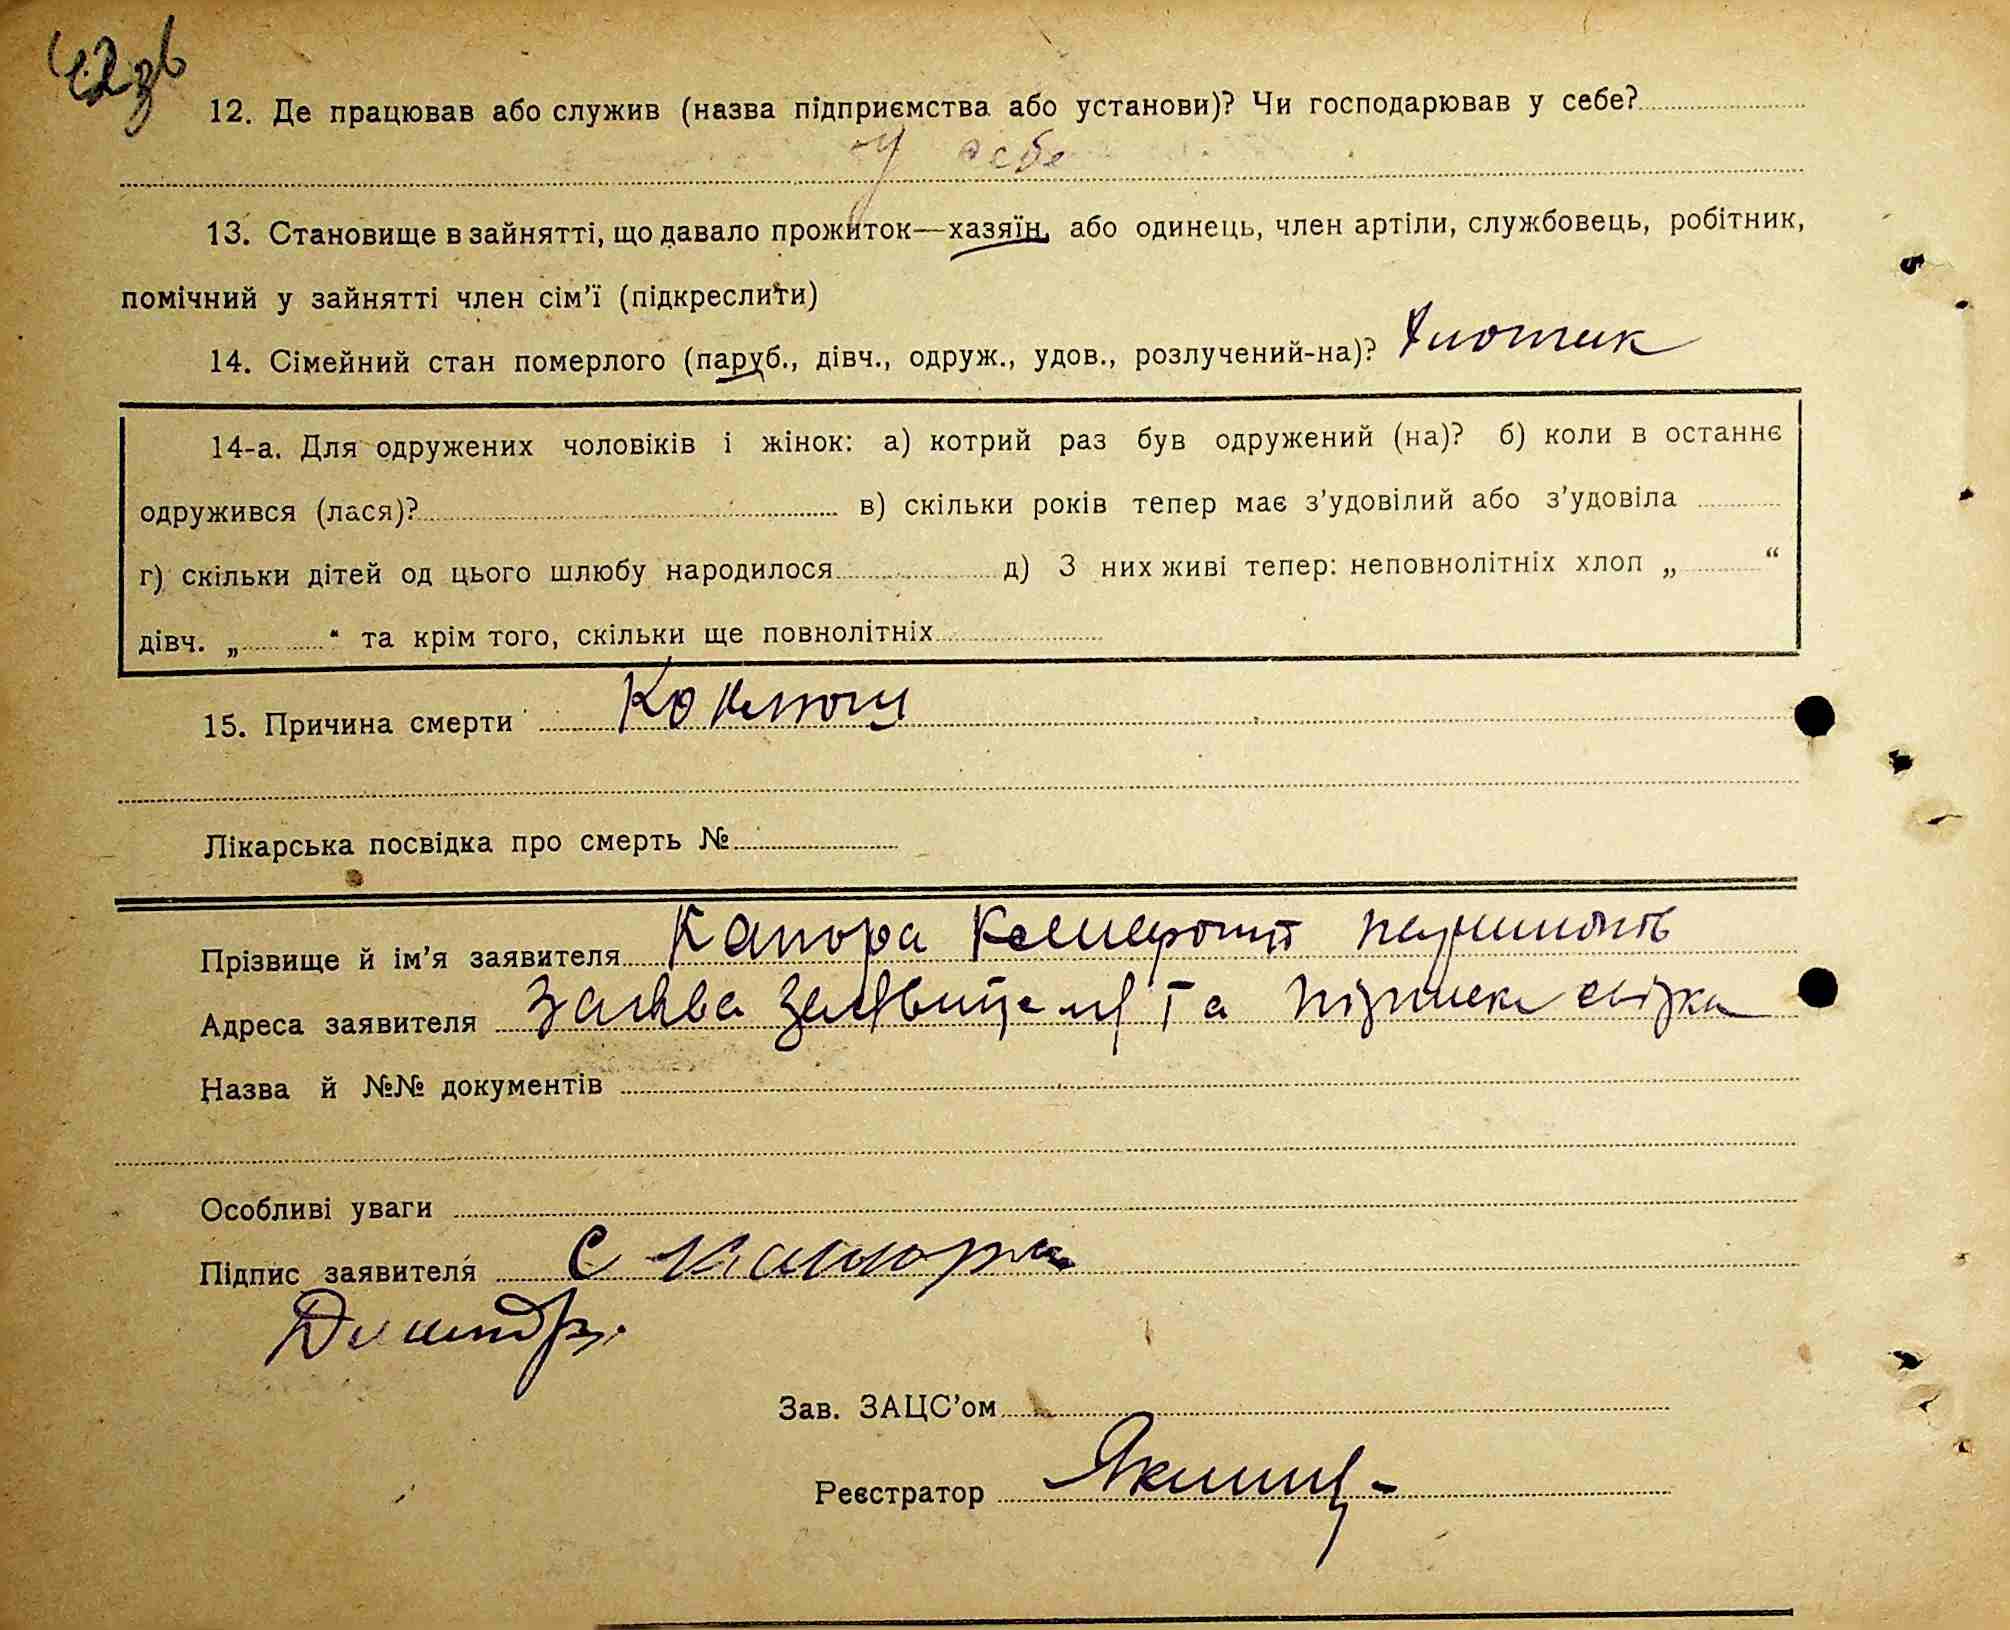 42зв
12. Де працював або служив (назва підприємства або установи)? Чи господарював у себе?
у себе
13. Становище в зайнятті, що давало прожиток—хазяїн, або одинець, член артіли, службовець, робітник,
помічний у зайнятті член сім’ї (підкреслити)
14. Сімейний стан померлого (паруб., дівч., одруж., удов., розлучений-на)? Хлопчик
14-а. Для одружених чоловіків і жінок: а) котрий раз був одружений (на)? б) коли в останнє
одружився (лася)? в) скільки років тепер має з’удовілий або з’удовіла
г) скільки дітей од цього шлюбу народилося д) З них живі тепер: неповнолітніх хлоп „ “
дівч. „ “ та крім того, скільки ще повнолітніх
15. Причина смерти Коклюш
Лікарська посвідка про смерть №
Прізвище й ім’я заявителя Капора
Адреса заявителя Заява заявителя та підписки свідка
Назва й №№ документів
Особливі уваги
Підпис заявителя С Капора
Зав. ЗАЦС’ом
Реєстратор